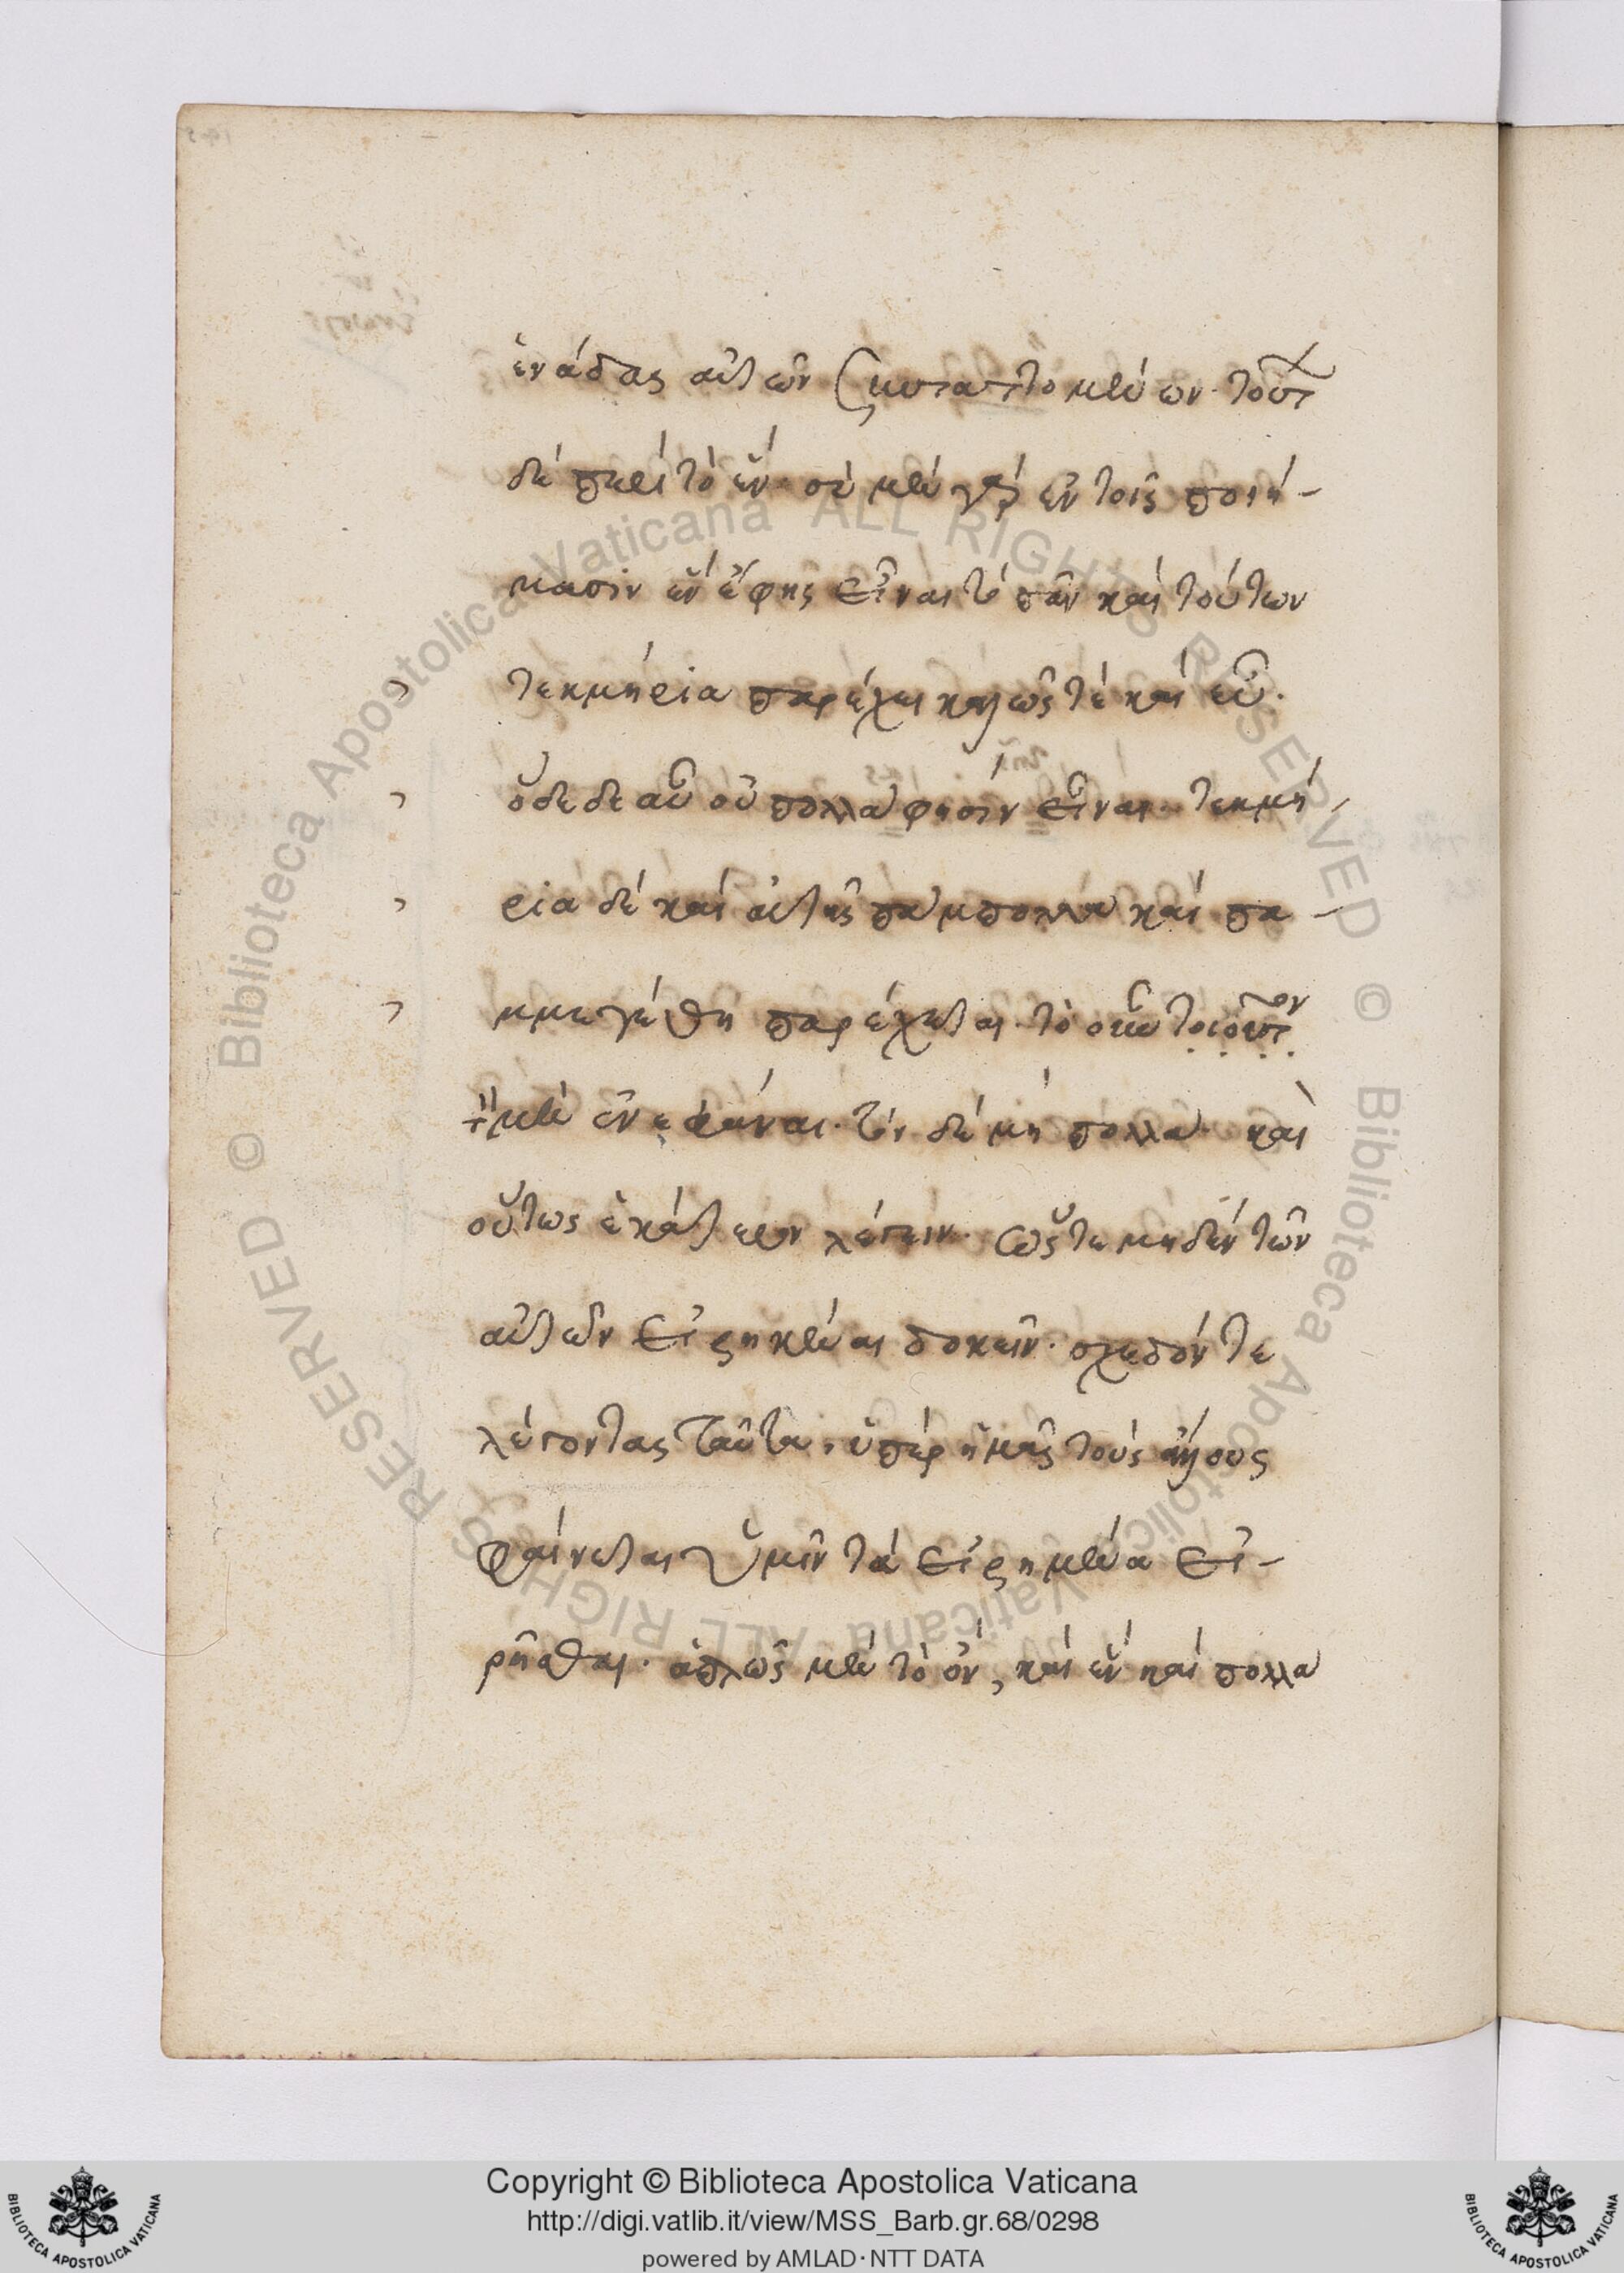 ἑνάδας αὐτῶν σκυταπτομένων· τοῦτ
δὲ περὶ τὸ ἕν· σὺ μὲν γὰρ ἐν τοῖς ποιή-
μασιν ἓν ἔφης εἶναι τὸ πᾶν καὶ τούτων
τεκμήρια παρέχει καλῶς τὲ καὶ εὖ·
ὅδε δε αὖ οὐ πολλὰ φησὶν εἶναι· τεκμή-
ρια δὲ καὶ αὐτῆς πάμπολλα καὶ πα-
μμεγέθη παρέχεται· τὸ οὖν τοιοῦτον
μὲν ἓν φάναι· τὸν δὲ μὴ πολλὰ· καὶ
οὕτως ἑκάτερον λέγειν· ὥστε μηδὲν τῶν
αὐτῶν εἰρηκέναι δοκεῖν· σχεδόν τε
λέγοντας ταῦτα, ὑπὲρ ἡμᾶς τοὺς ἄλλους
φαίνεται ὑμῖν τὰ εἰρημένα εἰ-
ρῆσθαι· ἁπλῶς μὲν τὸ ὄν, καὶ ἓν καὶ πολλὰ
Copyright © Biblioteca Apostolica Vaticana
http://digi.vatlib.it/view/MSS_Barb.gr.68/0298
powered by AMLAD·NTT DATA
BIBLIOTECA APOSTOLICA VATICANA
BIBLIOTECA APOSTOLICA VATICANA
© Biblioteca Apostolica Vaticana ALL RIGHTS RESERVED © Biblioteca Apostolica Vaticana ALL RIGHTS RESERVED